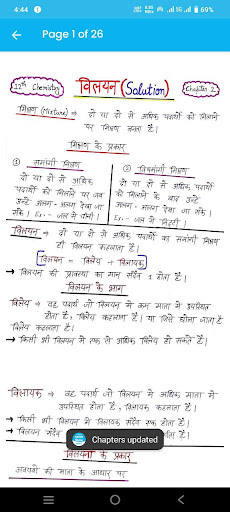 4:44
5G
69%
Page 1 of 26
12th Chemistry
विलयन (Solution)
Chapter 2
मिश्रण (Mixture) ⇒ दो या दो से अधिक पदार्थों को मिलाने
पर मिश्रण बनता है।
मिश्रण के प्रकार
① समांगी मिश्रण
दो या दो से अधिक
पदार्थों को मिलाने पर जब
उन्हें अलग-अलग देखा जा
सके। Ex.- जल में चीनी।
② विषमांगी मिश्रण
दो या दो से अधिक पदार्थों
को मिलाने के बाद उन्हें
अलग-अलग देखा जा
सके। Ex.- जल में मिट्टी।
विलयन ⇒ दो या दो से अधिक पदार्थों का समांगी मिश्रण
ही विलयन कहलाता है।
विलयन = विलेय + विलायक
→ विलयन की प्रावस्था का मान सदैव 1 होता है।
विलयन के भाग
विलेय → वह पदार्थ जो विलयन में कम मात्रा में उपस्थित
होता है, विलेय कहलाता है। या जिसे घोला जाता है
विलेय कहलाता है।
→ किसी भी विलयन में एक से अधिक विलेय हो सकते हैं।
विलायक → वह पदार्थ जो विलयन में अधिक मात्रा में
उपस्थित होता है, विलायक कहलाता है।
→ किसी भी विलयन में विलायक सदैव एक होता है।
→ विलयन सदैव
Chapters updated
विलयनों के प्रकार
अवयवों की मात्रा के आधार पर